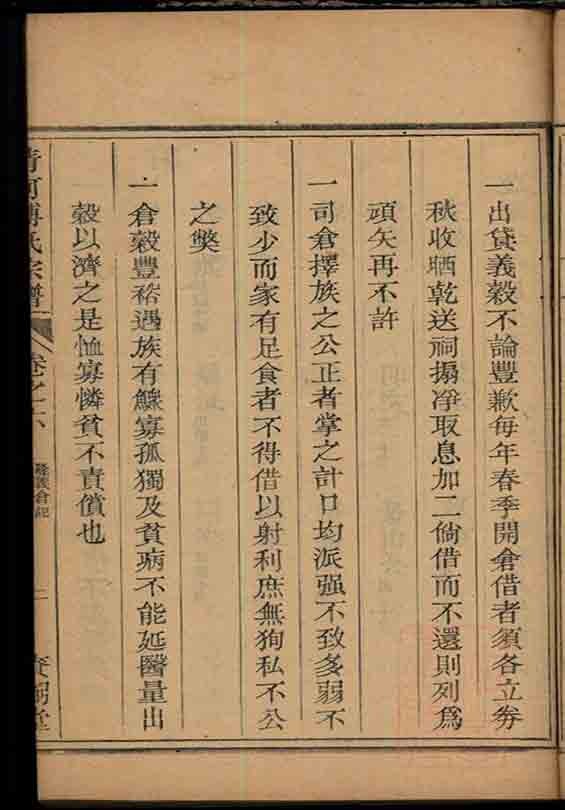 一出貸義穀不論豐歉每年春季開倉借者須各立劵
秋收晒乾送祠搧凈取息加二倘借而不還則列為
頑矢再不許
一司倉擇族之公正者掌之計口均派强不致多弱不
致少而家有足食者不得借以射利庶無狥私不公
之獘
一倉穀豐裕遇族有鰥寡孤獨及貧病不能延醫量出
穀以濟之是恤寡憐貧不責償也
清河傅氏宗譜 卷之六 義倉記 二